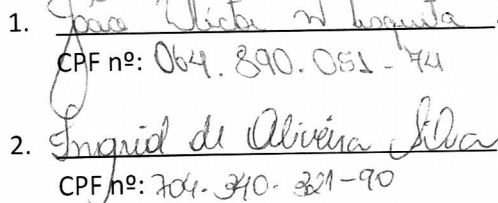 1. João Victor N Mesquita
CPF nº: 064.890.051-74
2. Ingrid de Oliveira Silva
CPF nº: 704.340.321-90